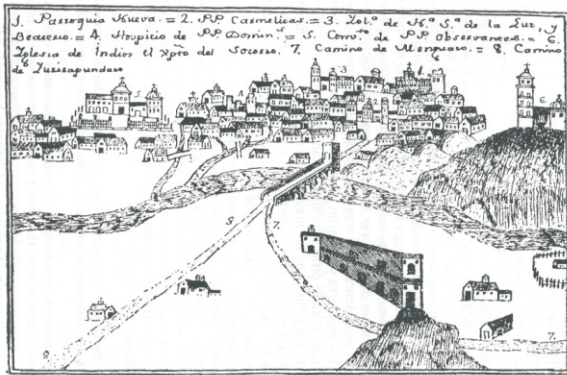 1. Parroquia Nueva. = 2. PP Carmelitas. = 3. Sol.º de Nª Sª de la Luz, y
Beaterio. = 4. Hospicio de PP Domin.s = 5. Conv.to de PP Observantes. = 6.
Iglesia de Indios el Xpto del Socorro. 7. Camino de Monguaro. = 8. Camino
de Yurirapundaro
5
4
3
1
6
8
7.
8
7.